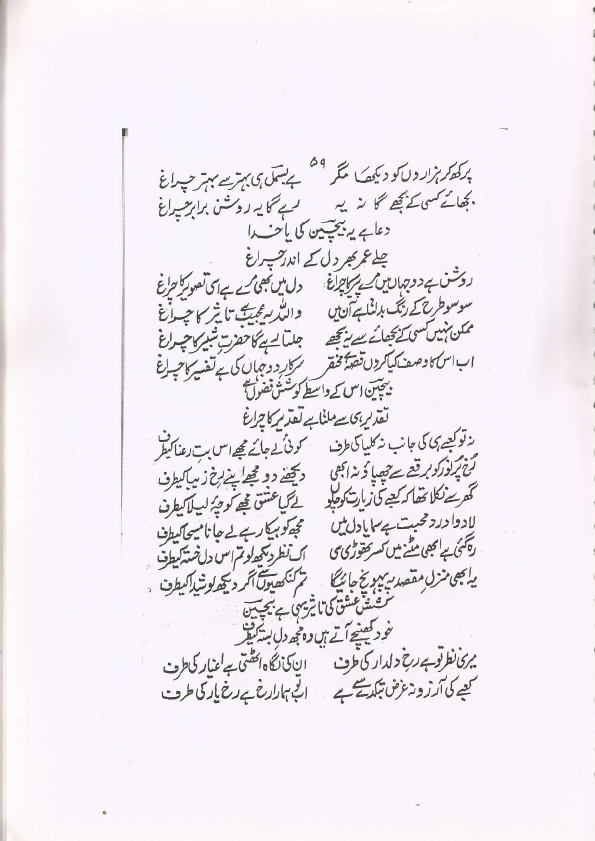 ۵۹
پرکھ کر ہزاروں کو دیکھا مگر ہے بسمل ہی بہتر سے بہتر چراغ
بجھائے کسی کے بجھے گا نہ یہ رہے گا یہ روشن برابر چراغ
دعا ہے یہ بیچین کی یا خدا
جلے عمر بھر دل کے اندر چراغ
روشن ہے دو جہاں میں مرے پیر کا چراغ دل میں بھی مرے ہے اسی تصویر کا چراغ
سو سو طرح کے رنگ بدلتا ہے آن میں واللہ یہ عجیب ہے تاثیر کا چراغ
ممکن نہیں کسی کے بجھائے سے یہ بجھے جلتا رہے گا حضرت شبیر کا چراغ
اب اس کا وصف کیا کروں قصہ مختصر سرکار دو جہاں کی ہے تفسیر کا چراغ
بیچین اس کے واسطے کوشش فضول ہے
تقدیر ہی سے ملتا ہے تقدیر کا چراغ
نہ تو کعبے ہی کی جانب نہ کلیسا کی طرف کوئی لے جائے مجھے اس بت رعنا کیطرف
رخ پر نور کو برقعے سے چھپاؤ نہ ابھی دیکھنے دو مجھے اپنے رخ زیبا کیطرف
گھر سے نکلا تھا کہ کعبے کی زیارت کو چلوں لے گیا عشق مجھے کوچۂ لیلا کیطرف
لا دوا درد محبت ہے سمایا دل میں مجھ کو بیکار ہے لے جانا مسیحا کیطرف
رہ گئی ہے ابھی مٹنے میں کسر تھوڑی سی اک نظر دیکھ لو تم اس دل خستہ کیطرف
یہ ابھی منزل مقصد پہ پہونچ جائیگا تم کنکھیوں سے اگر دیکھ لو شیدا کیطرف
کشش عشق کی تاثیر یہی ہے بیچین
خود کھنچے آتے ہیں وہ مجھ دل بستہ کیطرف
میری نظر تو ہے رخ دلدار کی طرف ان کی نگاہ اٹھتی ہے اغیار کی طرف
کعبے کی آرزو نہ غرض بتکدے سے ہے اب تو ہمارا رخ ہے رخ یار کی طرف